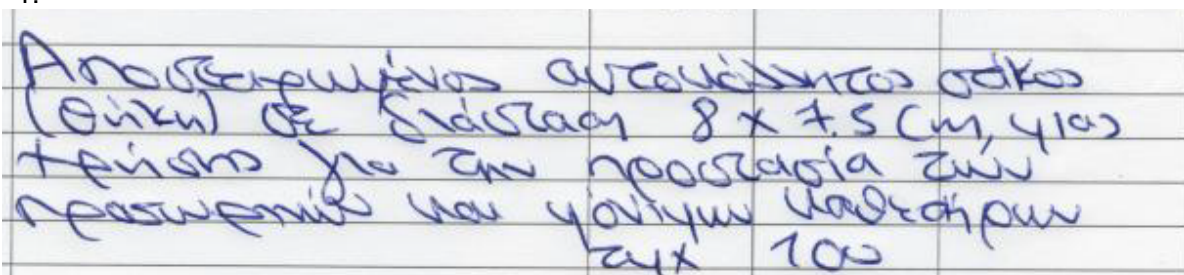 Αποστειρωμένος αυτοκόλλητος σάκος
(θήκη) σε διάσταση 8 x 7.5 cm, μιας
χρήσης για την προστασία των
προσωρινών και μόνιμων καθετήρων
τμχ 100